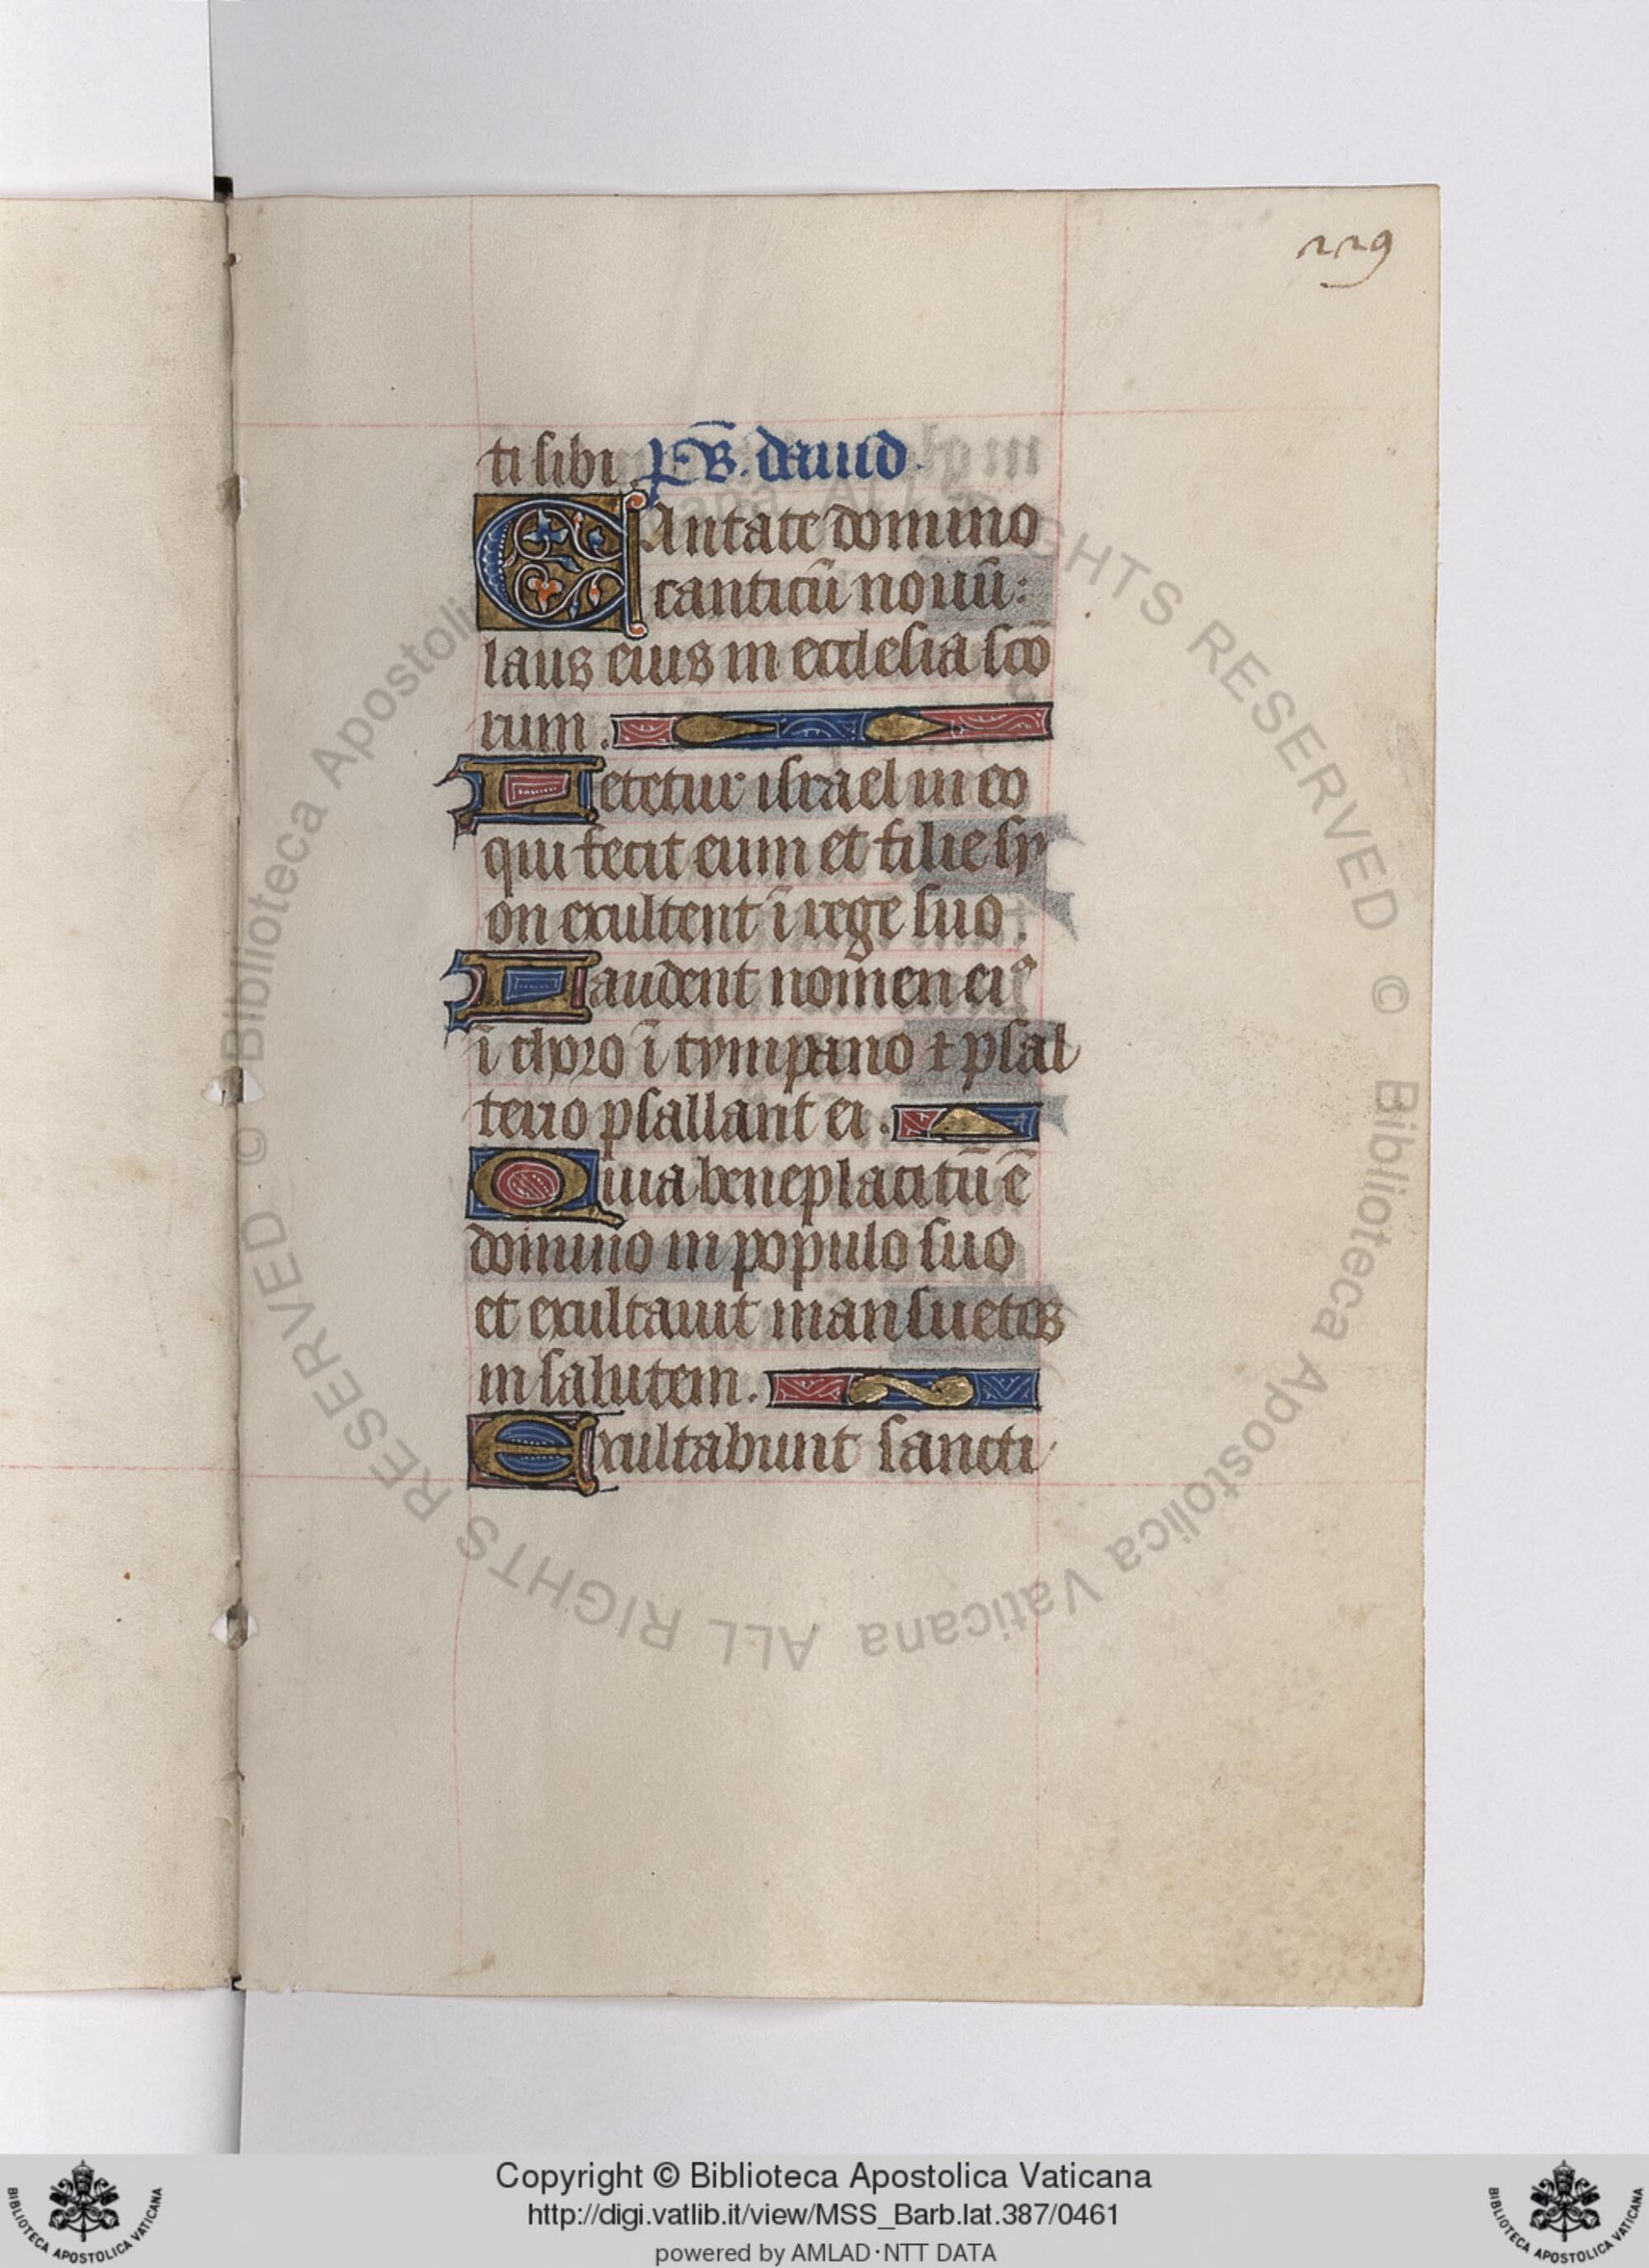 229
ti sibi. ps̄. dauid.
Cantate domino
canticū nouū:
laus eius in ecclesia sc̄o
rum.
Letetur israel in eo
qui fecit eum et filie sy
on exultent ī rege suo.
Laudent nomen eiꝰ
ī choro ī tympano ⁊ psal
terio psallant ei.
Quia beneplacitū ē
domino in populo suo
et exultauit mansuetos
in salutem.
Exultabunt sancti
© Biblioteca Apostolica Vaticana ALL RIGHTS RESERVED © Biblioteca Apostolica Vaticana ALL RIGHTS RESERVED
Copyright © Biblioteca Apostolica Vaticana
http://digi.vatlib.it/view/MSS_Barb.lat.387/0461
powered by AMLAD·NTT DATA
BIBLIOTECA APOSTOLICA VATICANA
BIBLIOTECA APOSTOLICA VATICANA